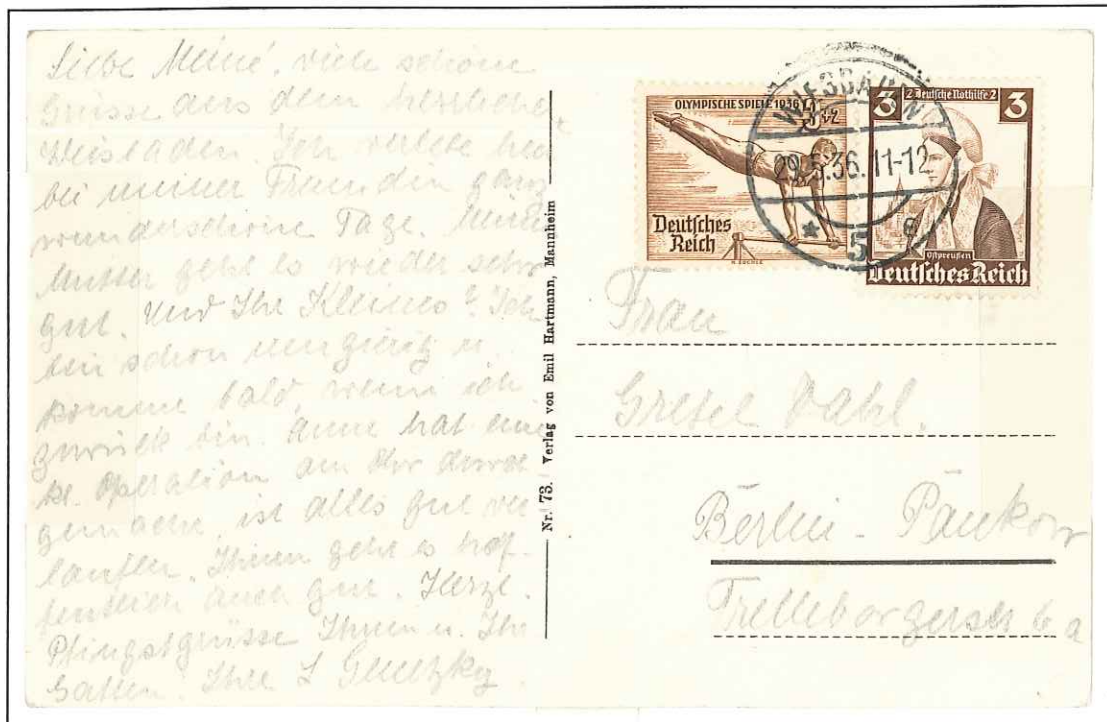 Liebe Meine, viele schöne
Grüsse aus dem herrlichen
Weisbaden. Ich verlebe hier
bei meiner Freundin ganz
wunderschöne Tage. Meine
Mutter geht es wieder sehr
gut. Und Ihr Kleines? Ich
bin schon neugierig u.
komme bald, wenn ich
zurück bin. Anne hat eine
kl. Operation am Ohr durch
gemacht, ist alles gut ver
laufen. Ihnen geht es hof-
fentlich auch gut. Herzl.
Pfingstgrüsse Ihnen u. Ihr
Gatten. Ihre L
Nr. 73. Verlag von Emil Hartmann, Mannheim
OLYMPISCHE SPIELE 1936
Deutsches
Reich
WIESBADEN
29.5.36.11-12
* 5 e
3 2 Deutsche Nothilfe 2 3
Ostpreußen
Deutsches Reich
Frau
Gretel Dahl.
Berlin - Pankow
Trelleborgerstr 6 a